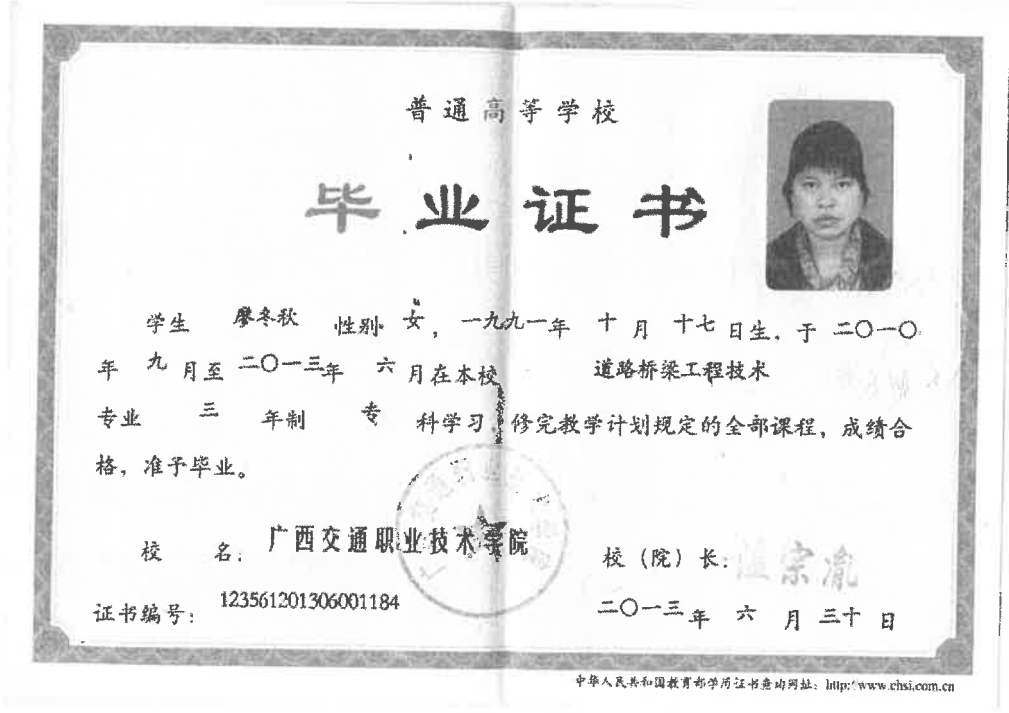 普通高等学校
毕业证书
学生 廖冬秋 性别 女，一九九一年 十 月 十七 日生，于 二〇一〇
年 九 月至 二〇一三年 六 月在本校 道路桥梁工程技术
专业 三 年制 专 科学习，修完教学计划规定的全部课程，成绩合
格，准予毕业。
校 名：广西交通职业技术学院 校（院）长：
证书编号：123561201306001184 二〇一三年 六 月 三十 日
中华人民共和国教育部学历证书查询网址：http://www.chsi.com.cn